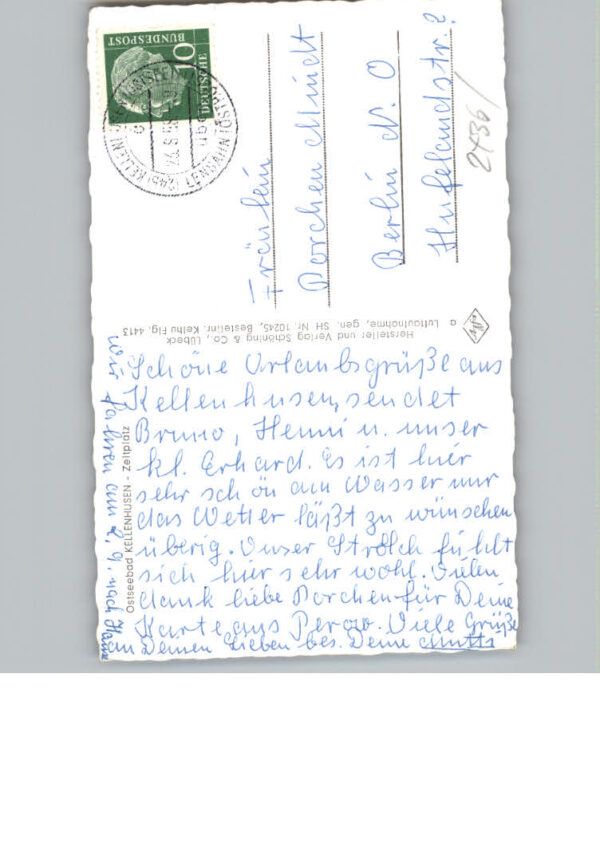 DEUTSCHE
BUNDESPOST
10
Fräulein
Dorchen Mindt
Berlin N. O
Hufelandstr. ?
2436/
a Luftaufnahme, gen. SH Nr. 10245, Bestellnr. Kelhu Flg. 4413
Hersteller und Verlag Schöning & Co., Lübeck
Ostseebad KELLENHUSEN - Zeltplatz
Schöne Urlaubsgrüße aus
Kellenhusen, sendet
Bruno, Henni u. unser
kl. Erhard. Es ist hier
sehr schön am Wasser nur
das Wetter läßt zu wünschen
überig. Unser Strolch fühlt
sich hier sehr wohl. Vielen
dank liebe Dorchen für Deine
Karte aus Perow. Viele Grüße
an Deinen Lieben bes. Deine Mutti
wir fahren am 2. 9. nach Hause